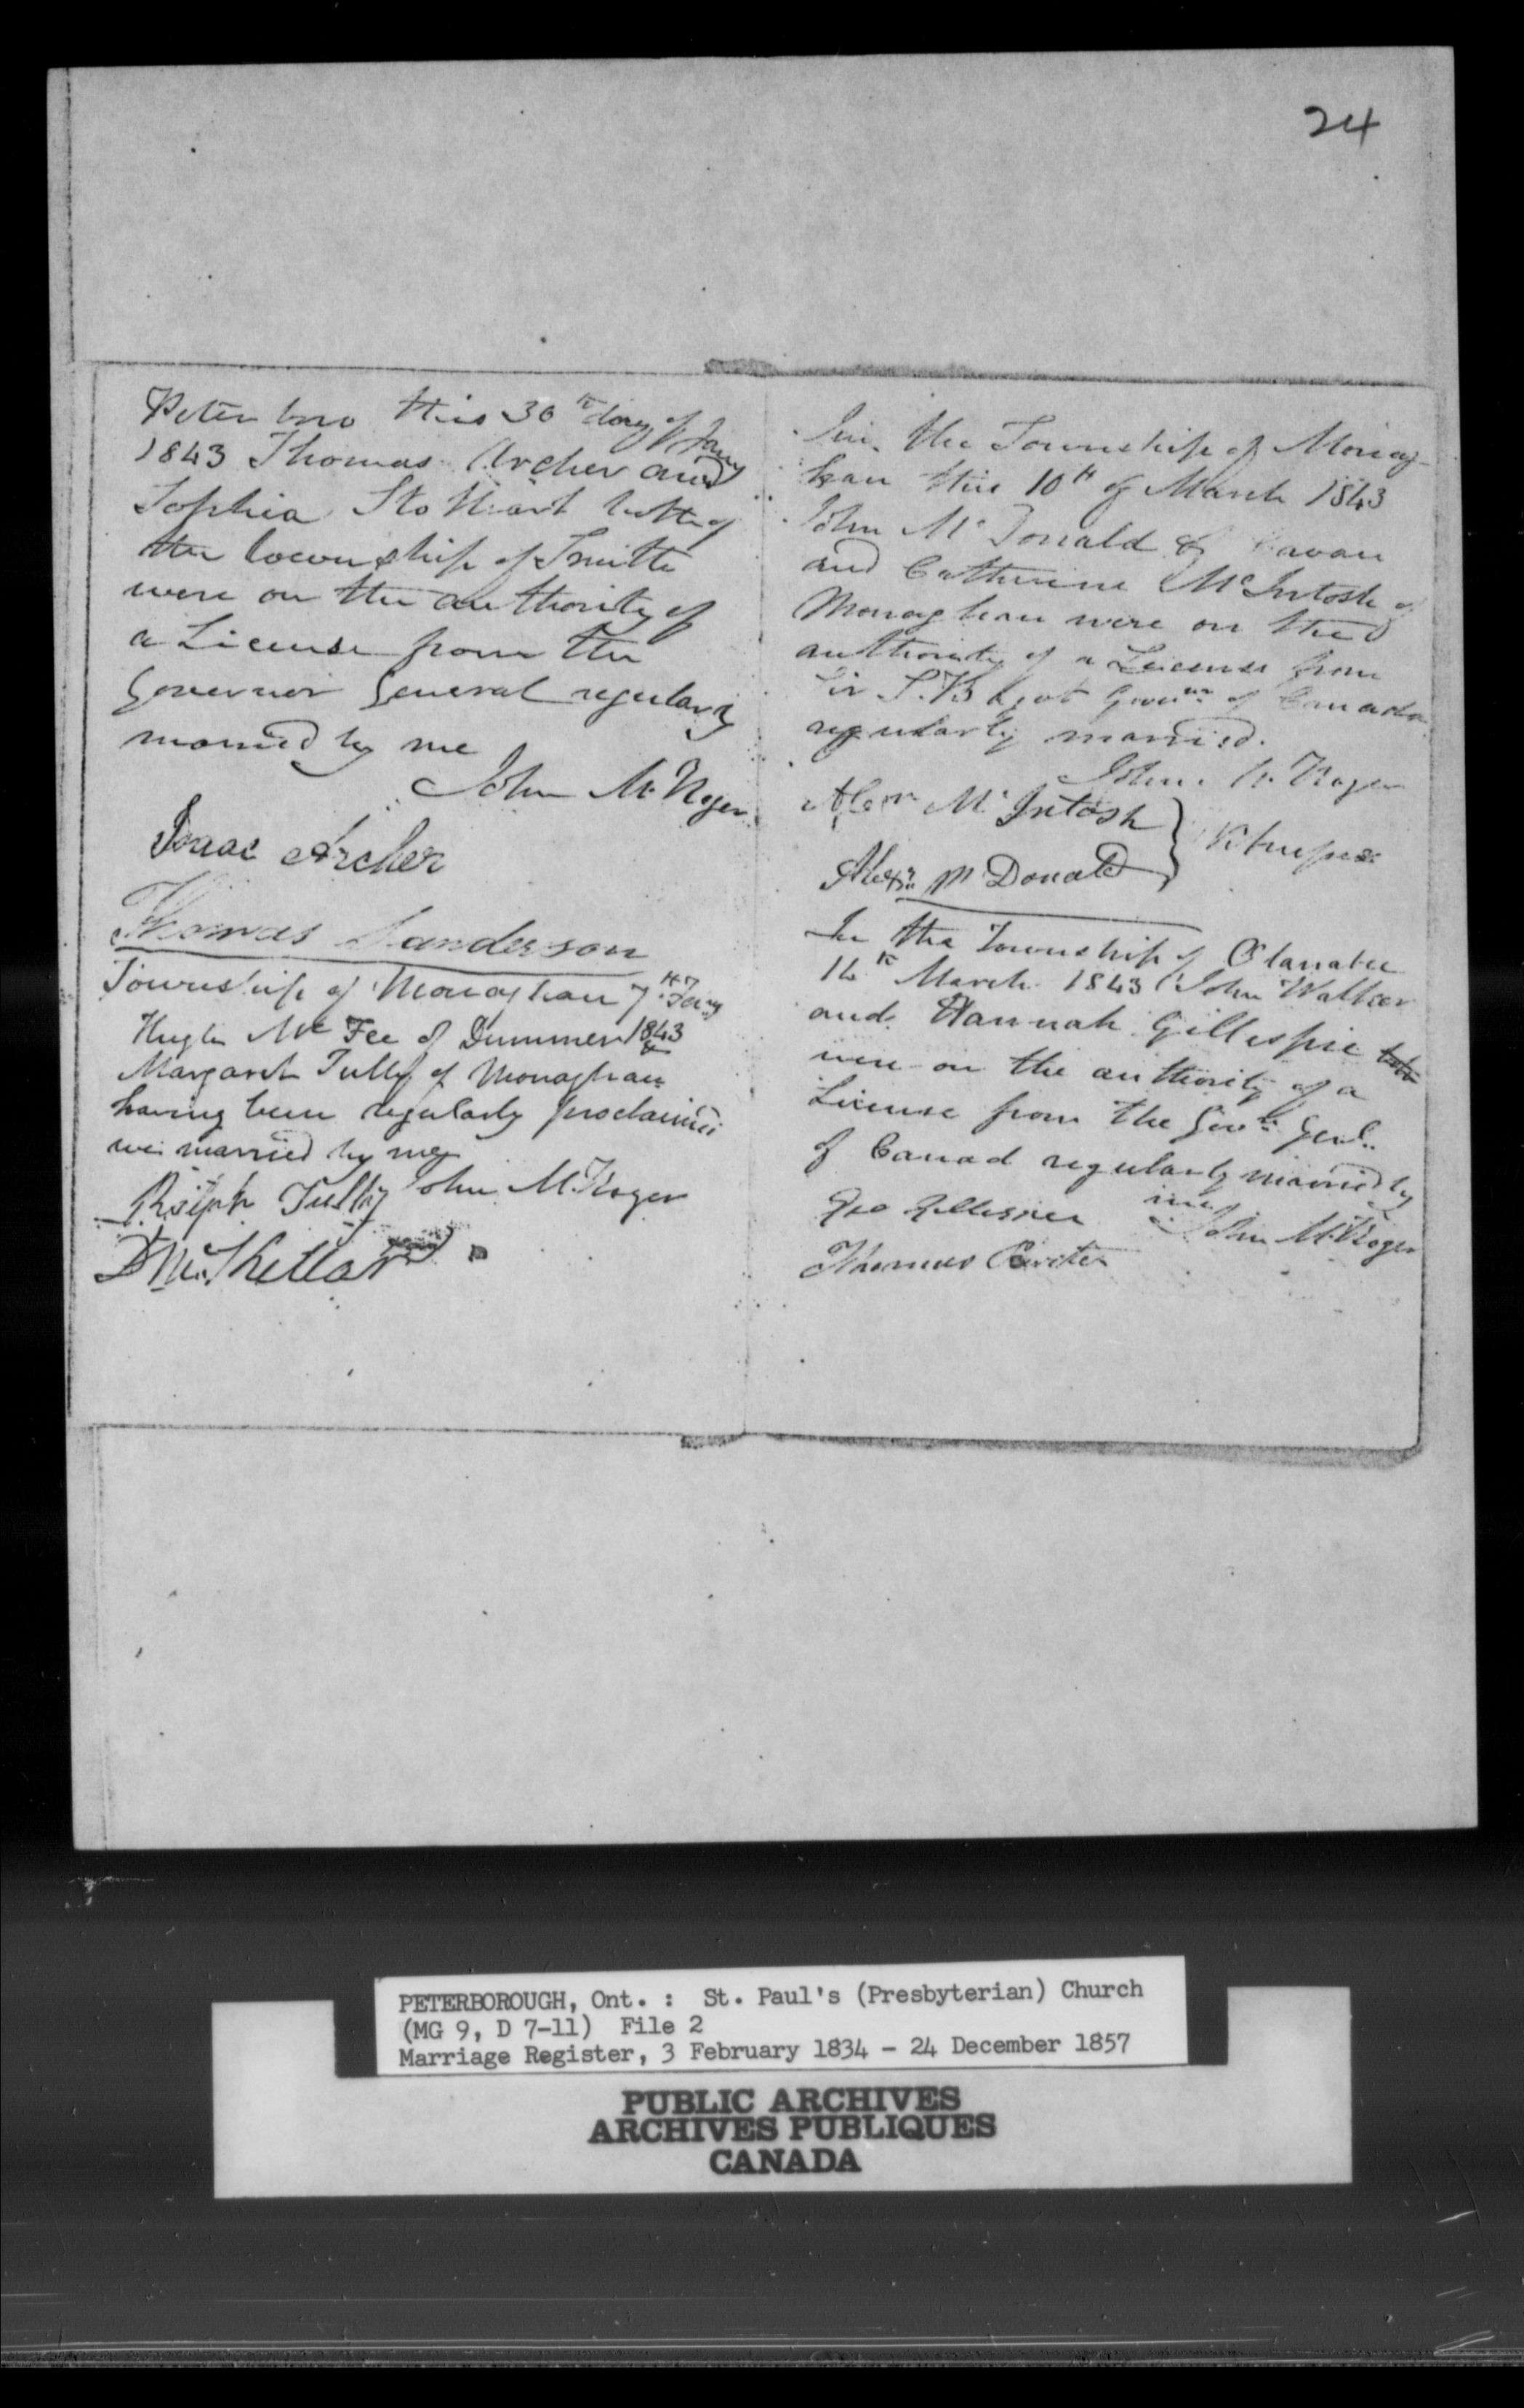 24
Peterboro this 30th day of Jany
1843 Thomas Archer and
Sophia Stothart both of
the township of Smith
were on the authority of
a License from the
Governor General regularly
married by me
John M. Roger
Isaac Archer
Thomas Sanderson
Township of Monaghan 7th Feby
Hugh McFee of Dummer 1843
&
Margaret Tully of Monaghan
having been regularly proclaimed
were married by me
John M. Roger
Ralph Tully
In the Township of Monag-
han this 10th of March 1843
John McDonald of Cavan
and Catherine McIntosh of
Monaghan were on the
authority of a License from
Sir Bagot Govrnr of Canada
regularly married.
John M. Roger
Alexr McIntosh
Witnesses
Alexr McDonald
In the Township of Otanabee
March 1843 John Walker
and Hannah Gillespie both
were on the authority of a
License from the Govr Genl.
of Canad regularly married by
me
John M. Roger
Geo Gillespie
Thomas
PETERBOROUGH, Ont. : St. Paul's (Presbyterian) Church
(MG 9, D 7-11) File 2
Marriage Register, 3 February 1834 - 24 December 1857
PUBLIC ARCHIVES
ARCHIVES PUBLIQUES
CANADA